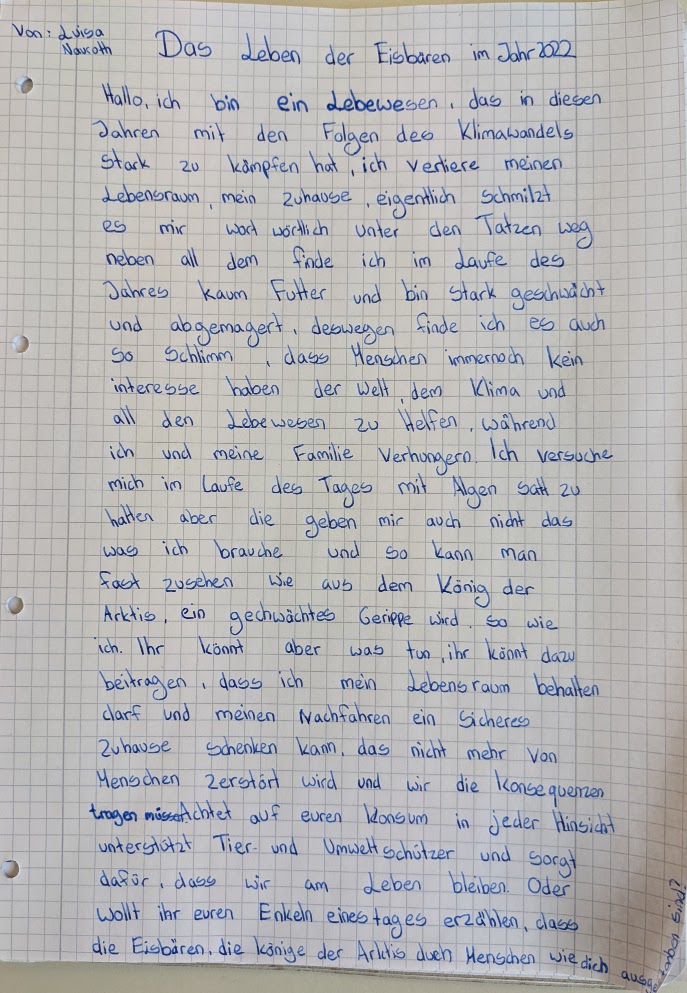 Von: Luisa
Nauroth
Das Leben der Eisbären im Jahr 2022
Hallo, ich bin ein Lebewesen, das in diesen
Jahren mit den Folgen des Klimawandels
stark zu kämpfen hat, ich verliere meinen
Lebensraum, mein zuhause, eigentlich schmilzt
es mir wort wörtlich unter den Tatzen weg
neben all dem finde ich im Laufe des
Jahres kaum Futter und bin stark geschwächt
und abgemagert, deswegen finde ich es auch
so schlimm, dass Menschen immernoch kein
interesse haben der Welt, dem Klima und
all den Lebewesen zu Helfen, während
ich und meine Familie Verhungern. Ich versuche
mich im Laufe des Tages mit Algen satt zu
halten aber die geben mir auch nicht das
was ich brauche und so kann man
fast zusehen wie aus dem König der
Arktis, ein gechwächtes Gerippe wird, so wie
ich. Ihr könnt aber was tun, ihr könnt dazu
beitragen, dass ich mein Lebensraum behalten
darf und meinen Nachfahren ein sicheres
Zuhause schenken kann, das nicht mehr von
Menschen zerstört wird und wir die Konsequenzen
tragen müssen Achtet auf euren Konsum in jeder Hinsicht
unterstützt Tier- und Umweltschützer und sorgt
dafür, dass wir am Leben bleiben. Oder
wollt ihr euren Enkeln eines tages erzählen, dass
die Eisbären, die könige der Arktis duch Menschen wie dich ausgestorben sind?